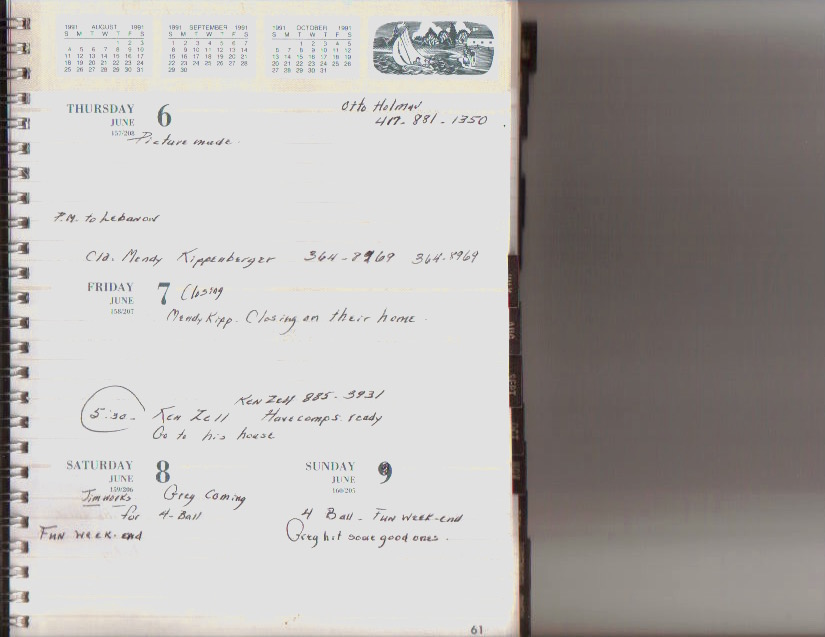 1991 AUGUST 1991
S M T W T F S
1 2 3
4 5 6 7 8 9 10
11 12 13 14 15 16 17
18 19 20 21 22 23 24
25 26 27 28 29 30 31
1991 SEPTEMBER 1991
S M T W T F S
1 2 3 4 5 6 7
8 9 10 11 12 13 14
15 16 17 18 19 20 21
22 23 24 25 26 27 28
29 30
1991 OCTOBER 1991
S M T W T F S
1 2 3 4 5
6 7 8 9 10 11 12
13 14 15 16 17 18 19
20 21 22 23 24 25 26
27 28 29 30 31
THURSDAY 6
JUNE
157/208
Otto Holman
417-881-1350
Picture made.
P.M. to Lebanon
Cld. Mendy Kippenberger 364-8969 364-8969
FRIDAY 7 Closing
JUNE
158/207
Mendy Kipp - Closing on their home.
Ken Zell 885-3931
5:30- Ken Zell Have comps. ready
Go to his house
SATURDAY 8
JUNE
159/206
Jim works Greg Coming
for 4-Ball
Fun week-end
SUNDAY 9
JUNE
160/205
4 Ball - Fun week-end
Greg hit some good ones.
61